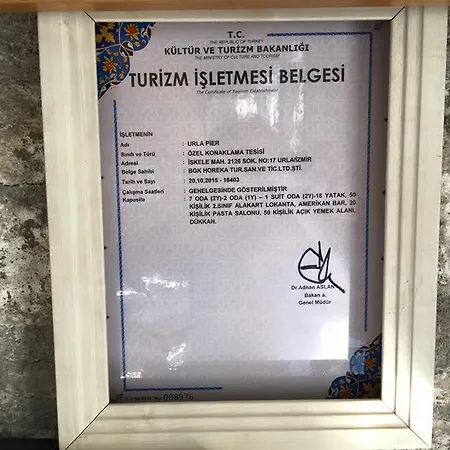 T.C.
THE REPUBLIC OF TURKEY
KÜLTÜR VE TURİZM BAKANLIĞI
THE MINISTRY OF CULTURE AND TOURISM
TURİZM İŞLETMESİ BELGESİ
The Certificate of Tourism Establishment
İŞLETMENİN
Adı : URLA PİER
Sınıfı ve Türü : ÖZEL KONAKLAMA TESİSİ
Adresi : İSKELE MAH. 2126 SOK. NO:17 URLA/İZMİR
Belge Sahibi : BGK HOREKA TUR.SAN.VE TİC.LTD.ŞTİ.
Tarih ve Sayı : 20.10.2015 - 16403
Çalışma Saatleri : GENELGESİNDE GÖSTERİLMİŞTİR
Kapasite : 7 ODA (2Y)-2 ODA (1Y) – 1 SUİT ODA (2Y)-18 YATAK, 50
KİŞİLİK 2.SINIF ALAKART LOKANTA, AMERİKAN BAR, 20
KİŞİLİK PASTA SALONU, 50 KİŞİLİK AÇIK YEMEK ALANI,
DÜKKAN.
Dr.Adnan ASLAN
Bakan a.
Genel Müdür
008976